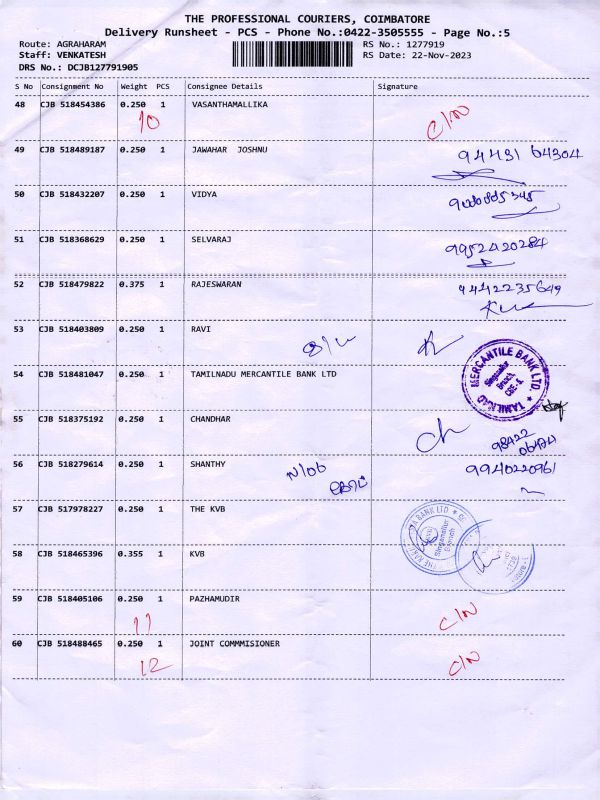 THE PROFESSIONAL COURIERS, COIMBATORE
Delivery Runsheet - PCS - Phone No.:0422-3505555 - Page No.:5
Route: AGRAHARAM RS No.: 1277919
Staff: VENKATESH RS Date: 22-Nov-2023
DRS No.: DCJB127791905
S No Consignment No Weight PCS Consignee Details Signature
48 CJB 518454386 0.250 1 VASANTHAMALLIKA
10 C/N
49 CJB 518489187 0.250 1 JAWAHAR JOSHNU 94431 64304
50 CJB 518432207 0.250 1 VIDYA
51 CJB 518368629 0.250 1 SELVARAJ 9952420284
52 CJB 518479822 0.375 1 RAJESWARAN 9442235649
53 CJB 518403809 0.250 1 RAVI
54 CJB 518481047 0.250 1 TAMILNADU MERCANTILE BANK LTD
MERCANTILE BANK LTD. * TAMILNAD
Singanallur
Branch
CBE-5.
55 CJB 518375192 0.250 1 CHANDHAR
Ch 98422
06474
56 CJB 518279614 0.250 1 SHANTHY 9940220961
57 CJB 517978227 0.250 1 THE KVB
BANK LTD
Singanallur
Branch
58 CJB 518465396 0.355 1 KVB
59 CJB 518405106 0.250 1 PAZHAMUDIR
11 C/N
60 CJB 518488465 0.250 1 JOINT COMMMISIONER
12 C/N